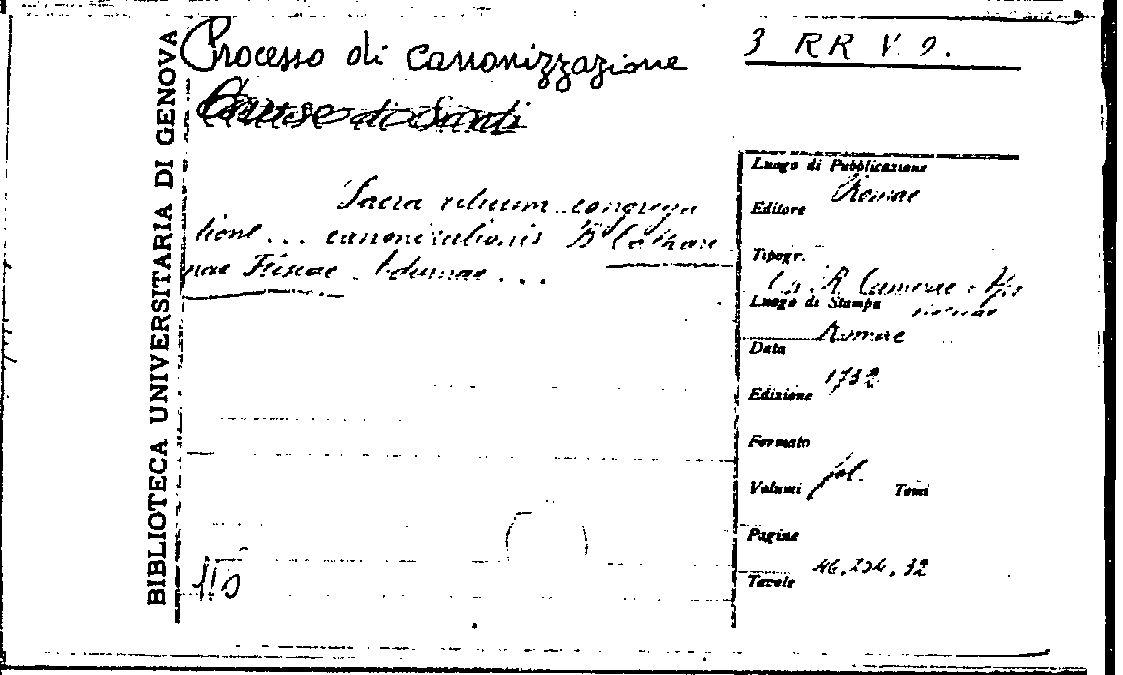 BIBLIOTECA UNIVERSITARIA DI GENOVA
Processo di canonizzazione
3 R R V. 9.
Cause di Santi
Sacra rituum congrega
tione ... canonizationis B. Cathari
nae Fliscae Adurnae ...
Luogo di Pubblicazione
Romae
Editore
Tipogr.
R. Camerae
Luogo di Stampa
Romae
Data
1732
Edizione
Formato
fol.
Volumi Tomi
Pagine
46, 254, 32
Tavole